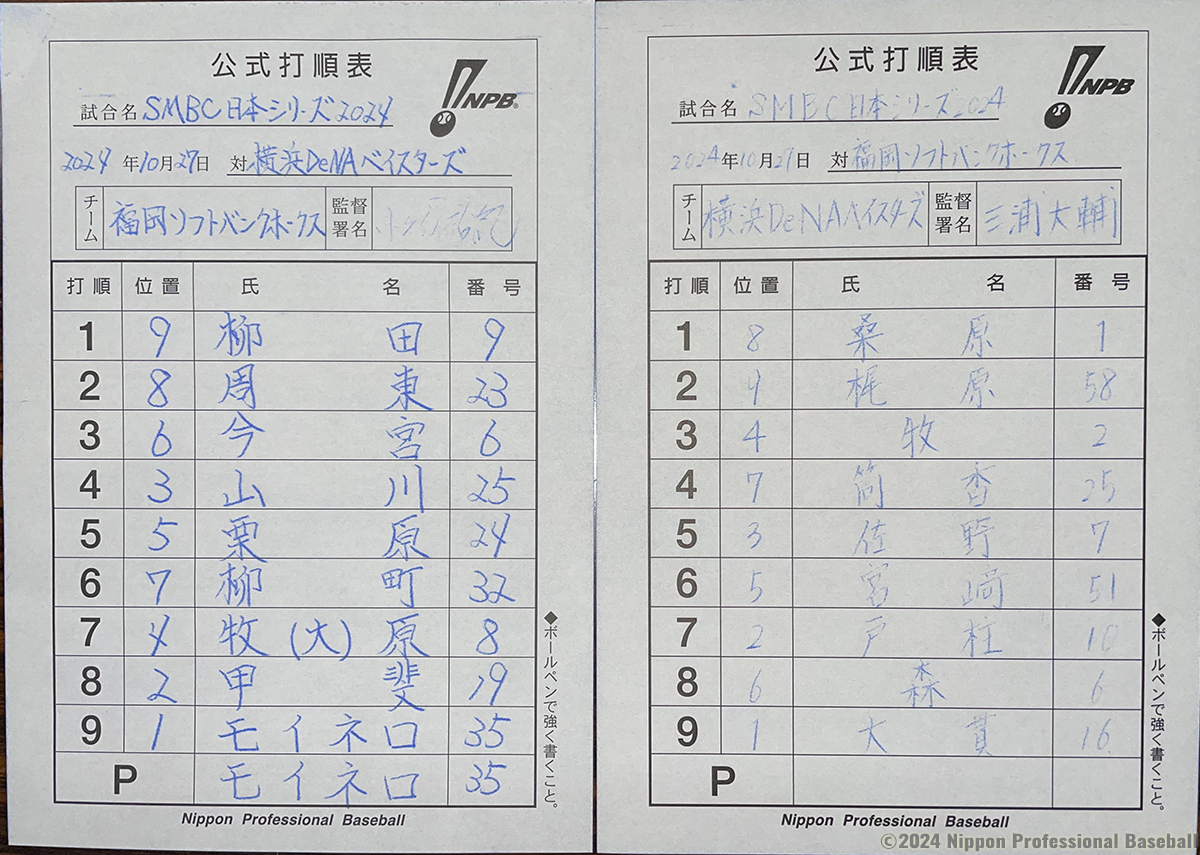 公式打順表
NPB
試合名 SMBC日本シリーズ2024
2024年10月27日 対 横浜DeNAベイスターズ
チーム 福岡ソフトバンクホークス 監督署名
打順 位置 氏名 番号
1 9 柳田 9
2 8 周東 23
3 6 今宮 6
4 3 山川 25
5 5 栗原 24
6 7 柳町 32
7 4 牧(大)原 8
8 2 甲斐 19
9 1 モイネロ 35
P モイネロ 35
◆ボールペンで強く書くこと。
Nippon Professional Baseball
公式打順表
NPB
試合名 SMBC日本シリーズ2024
2024年10月27日 対 福岡ソフトバンクホークス
チーム 横浜DeNAベイスターズ 監督署名 三浦大輔
打順 位置 氏名 番号
1 8 桑原 1
2 9 梶原 58
3 4 牧 2
4 7 筒香 25
5 3 佐野 7
6 5 宮﨑 51
7 2 戸柱 10
8 6 森 6
9 1 大貫 16
P
◆ボールペンで強く書くこと。
Nippon Professional Baseball
©2024 Nippon Professional Baseball